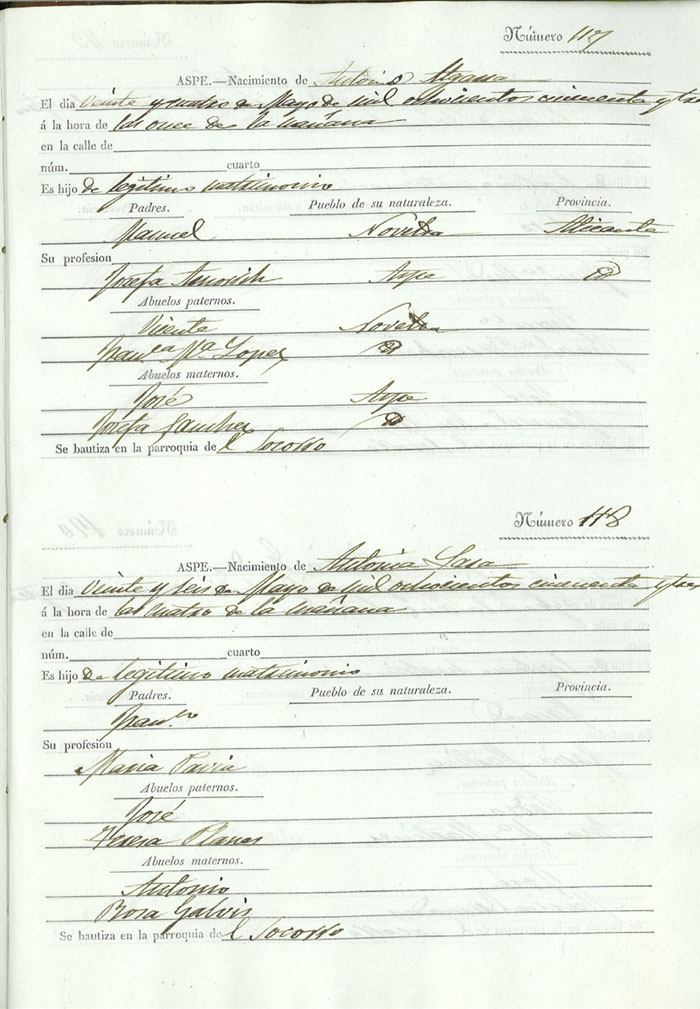 Número 117
ASPE.—Nacimiento de Antonio
El dia veinte y cuatro de Mayo de mil ochocientos cincuenta y tres
á la hora de las once de la mañana
en la calle de
núm. cuarto
Es hijo de legitimo matrimonio
Padres. Pueblo de su naturaleza. Provincia.
Manuel Novelda Alicante
Su profesion
Josefa Aspe
Abuelos paternos.
Vicente Novelda
Fran.ca Mª Lopez
Abuelos maternos.
José Aspe
Josefa Sanchez
Se bautiza en la parroquia del Socorro
Número 118
ASPE.—Nacimiento de Antonia
El dia veinte y seis de Mayo de mil ochocientos cincuenta y tres
á la hora de las cuatro de la mañana
en la calle de
núm. cuarto
Es hijo de legitimo matrimonio
Padres. Pueblo de su naturaleza. Provincia.
Fran.co
Su profesion
Maria Pavia
Abuelos paternos.
José
Teresa Planes
Abuelos maternos.
Antonio
Rosa Galvis
Se bautiza en la parroquia del Socorro